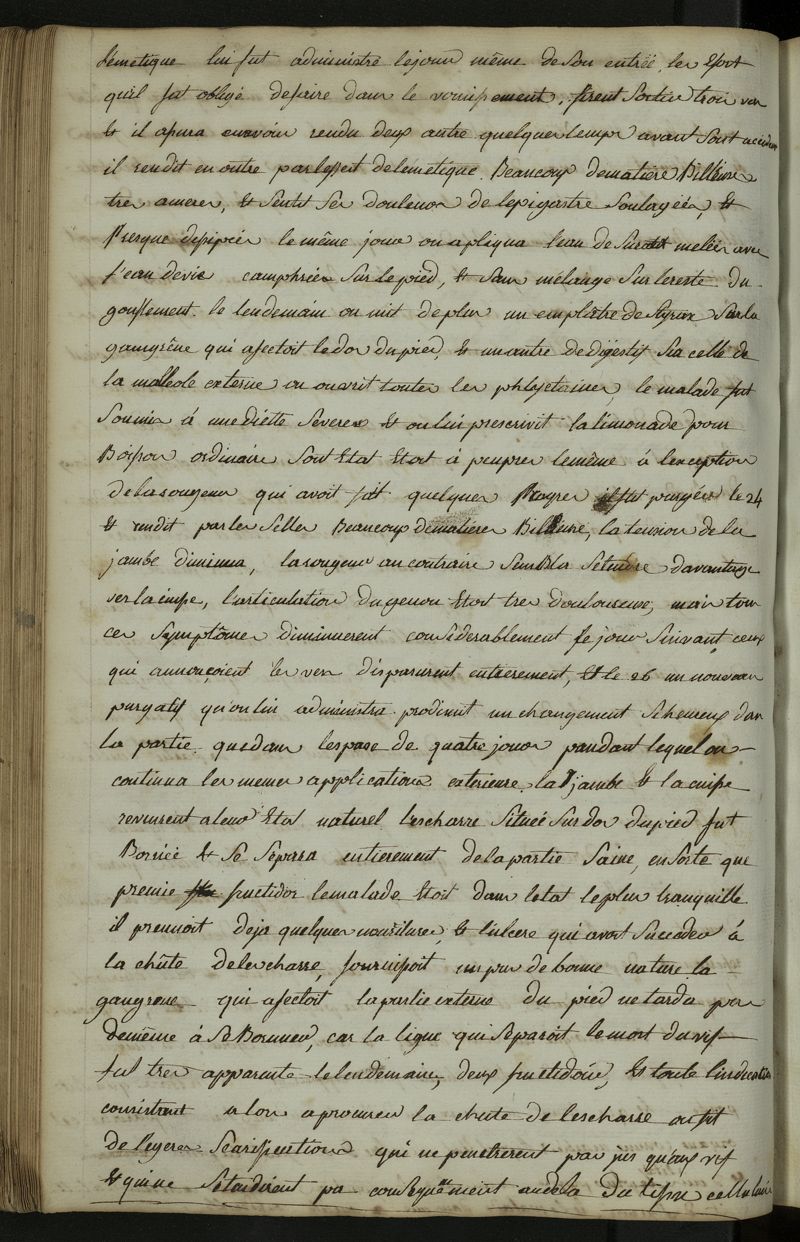 L'émetique lui fut administré lejour même de Son entrëë, les Efort
quil fut obligé defaire dans le vomissement, firent Sortir trois vers
Et il assura enavoir rendu deux autre quelquer temps avant Sont accident
il rendit en outre par lesfect delémetique. Beaucoup dematiere Billieuse
tres amerer, Et Sentit Ses douleurs de lepigastre Soulagéér, Et
Presque dissipéér le même jour on apliqua leau de Surat meléér avec
l'eau devie camphréér Sur le pied, Et Sans mélange Sur lereste du
gonflement. le lendemain on mit deplus un emplâtre de Styrax Sur la
gangrêne qui afectoit le dos du pied, Et un autre de digestif Sur celle de
la malleole externe on ouvrit toutes les phlyctaines, le malade fut
Soumis á une diétte Severes Et on lui prescrivit la limonade pour
Boisson ordinaire Sont Etat Etoit á peuprer lemême á lexception
de larougeur qui avoit fait quelquer Progres il fut purgéér le 24
Et rendit par les Selles Beaucoup dematieres Billieuse, la tension de la
jambe diminua, larougeur au contraire Sembla Sétendre davantage
vers la cuisse, l'articulation du genou Etoit tres douloureuse, mais tous
ces Symptômes diminuerent considerablement le jour Suivant, ceux
qui annonçoient les vers disparurent entierement, Et le 26 un nouveau
purgatif qu'on lui administra produisit un changement Si heureux dans
la partie. que dans lespase de quatre jours pandant lequel on
continua les memes applications exterieure, la jambe Et la cuisse
revinrent a leur Etat naturel lescharre Situéé Sur dos du pied fut
Bornéé Et Se Separa entierement de la partie Saine, en Sorte que
premie fructidor le malade Etoit dans letat le plus tranquille
il prennoit deja quelquer nouriture, Et lulcere qui avoit Succedér á
la chûte de lescharre, fournissoit un pus de bonne nature la
gangrene qui afectoit la partie externe du pied ne tarda pas
demême á Se Borner, car la ligne qui Separoit le mort du vif
fut tres apparente le lendemain, deux fructidor, Et toute lindication
consistant alors a procurer la chute de lescharre on fit
de legeres Scarification qui ne penetrerent pas jus quaux vif
Et qui ne Setendirent pa conseqmment audela du tissu cellulaire